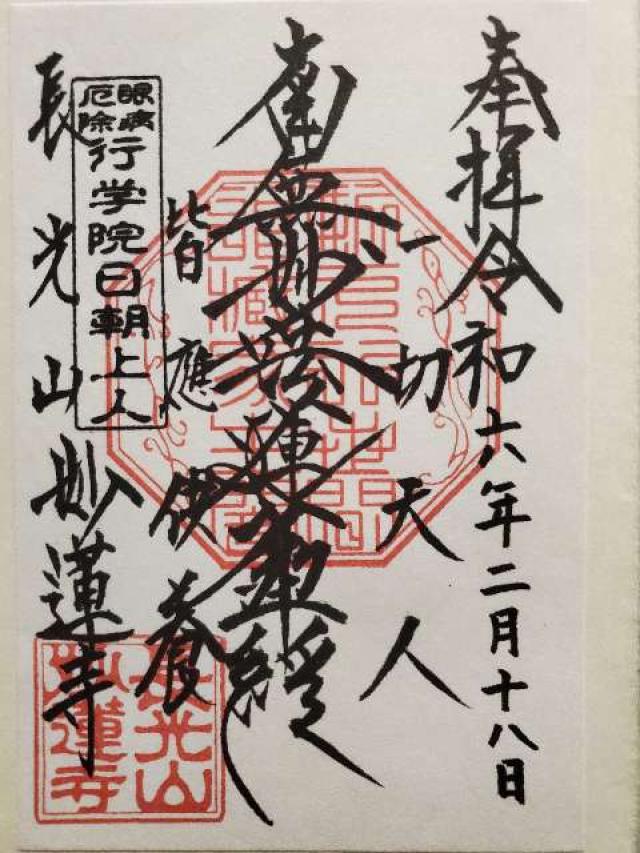 奉拝令和六年二月十八日
一切天人
南無妙法蓮華經
皆應供養
眼病
厄除
行学院日朝上人
長光山妙蓮寺
長光山
妙蓮寺